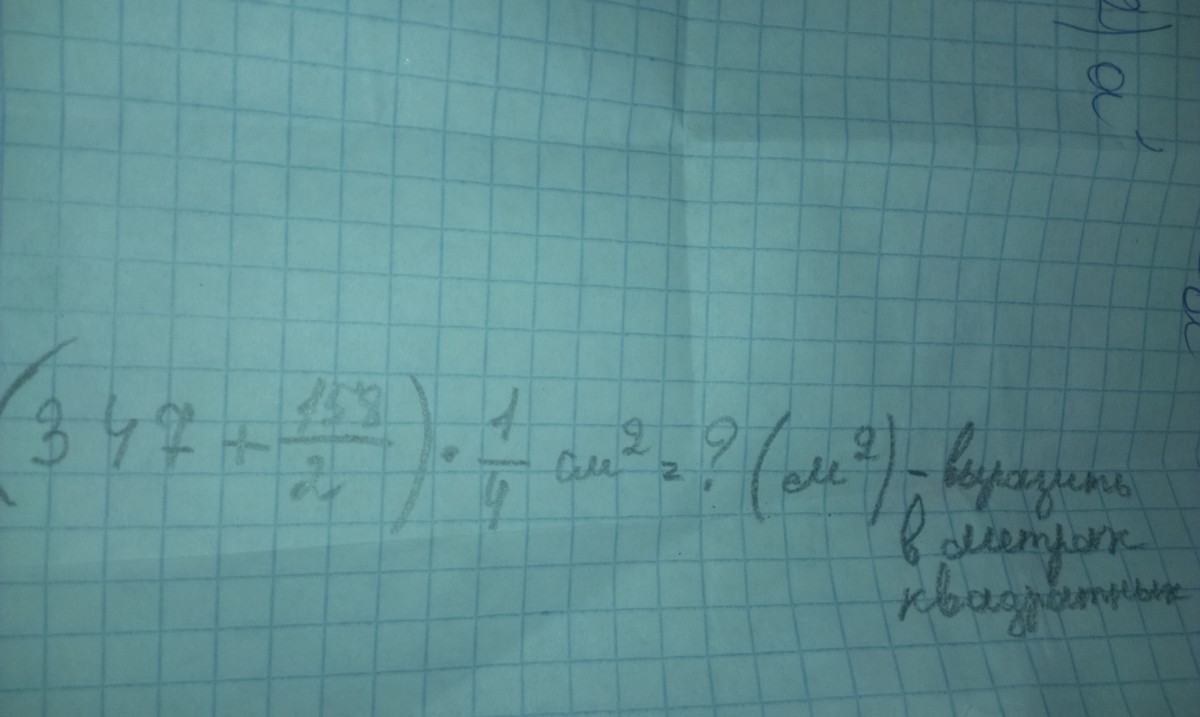 (347 + 158/2) · 1/4 см² = ? (м²) – выразить
в метрах
квадратных
2) a